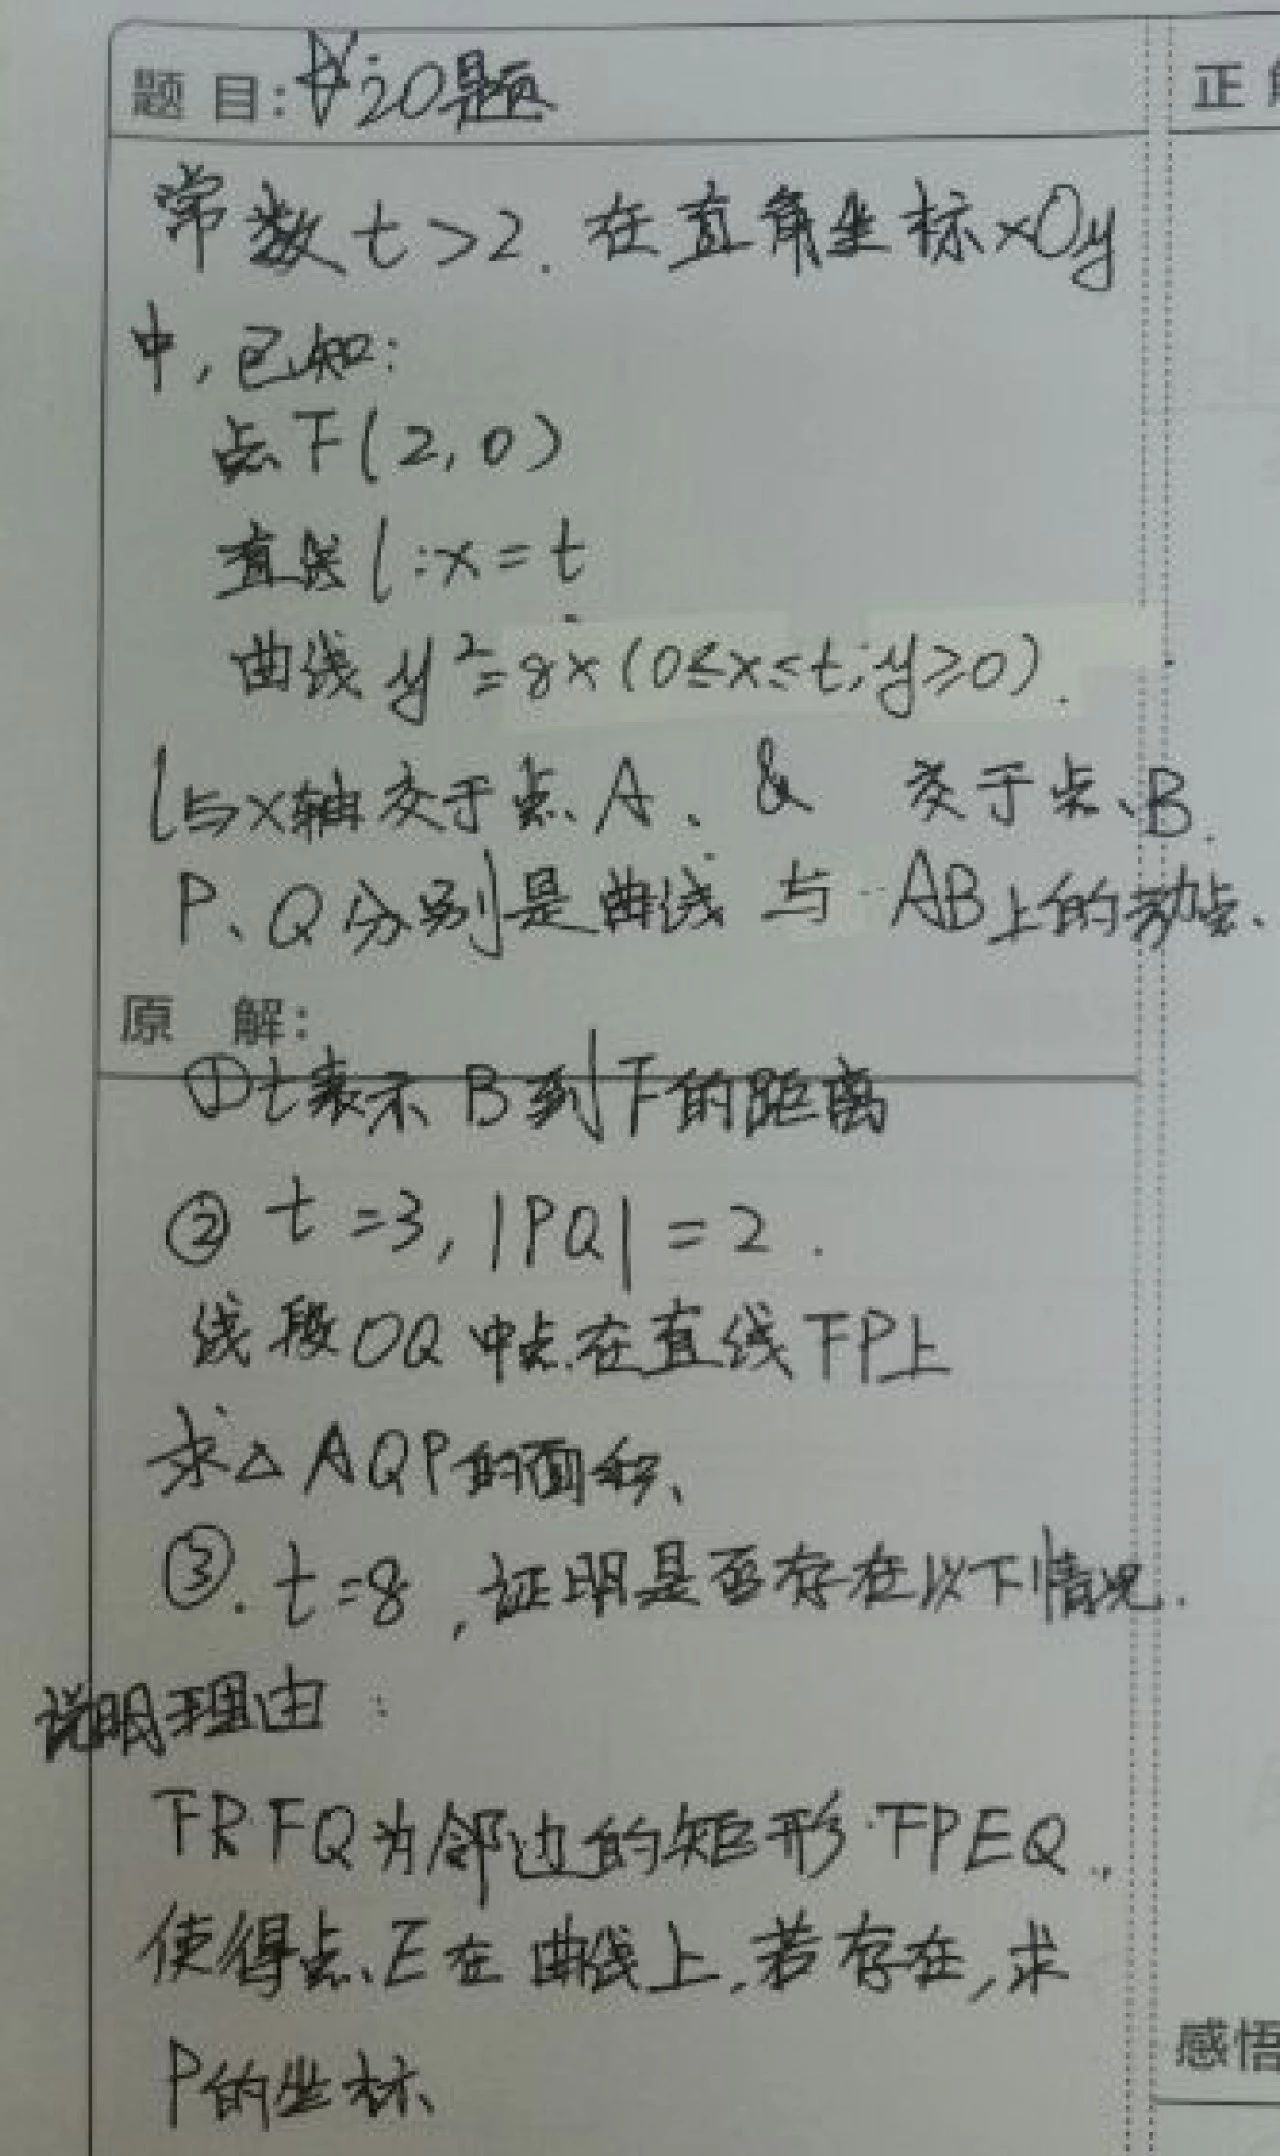 题 目: 20题
正
常数 t>2. 在直角坐标xOy
中,已知:
点F(2,0)
直线 l:x=t
曲线 y²=8x(0≤x≤t;y≥0).
l与x轴交于点A、& 交于点、B.
P、Q分别是曲线 与 AB上的动点、
原 解:
①t表示 B到F的距离
② t=3, |PQ|=2.
线段OQ中点在直线FP上
求△AQP的面积、
③. t=8,证明是否存在以下情况.
说明理由:
FP.FQ为邻边的矩形FPEQ.
使得点、E在曲线上,若存在,求
P的坐标、
感悟